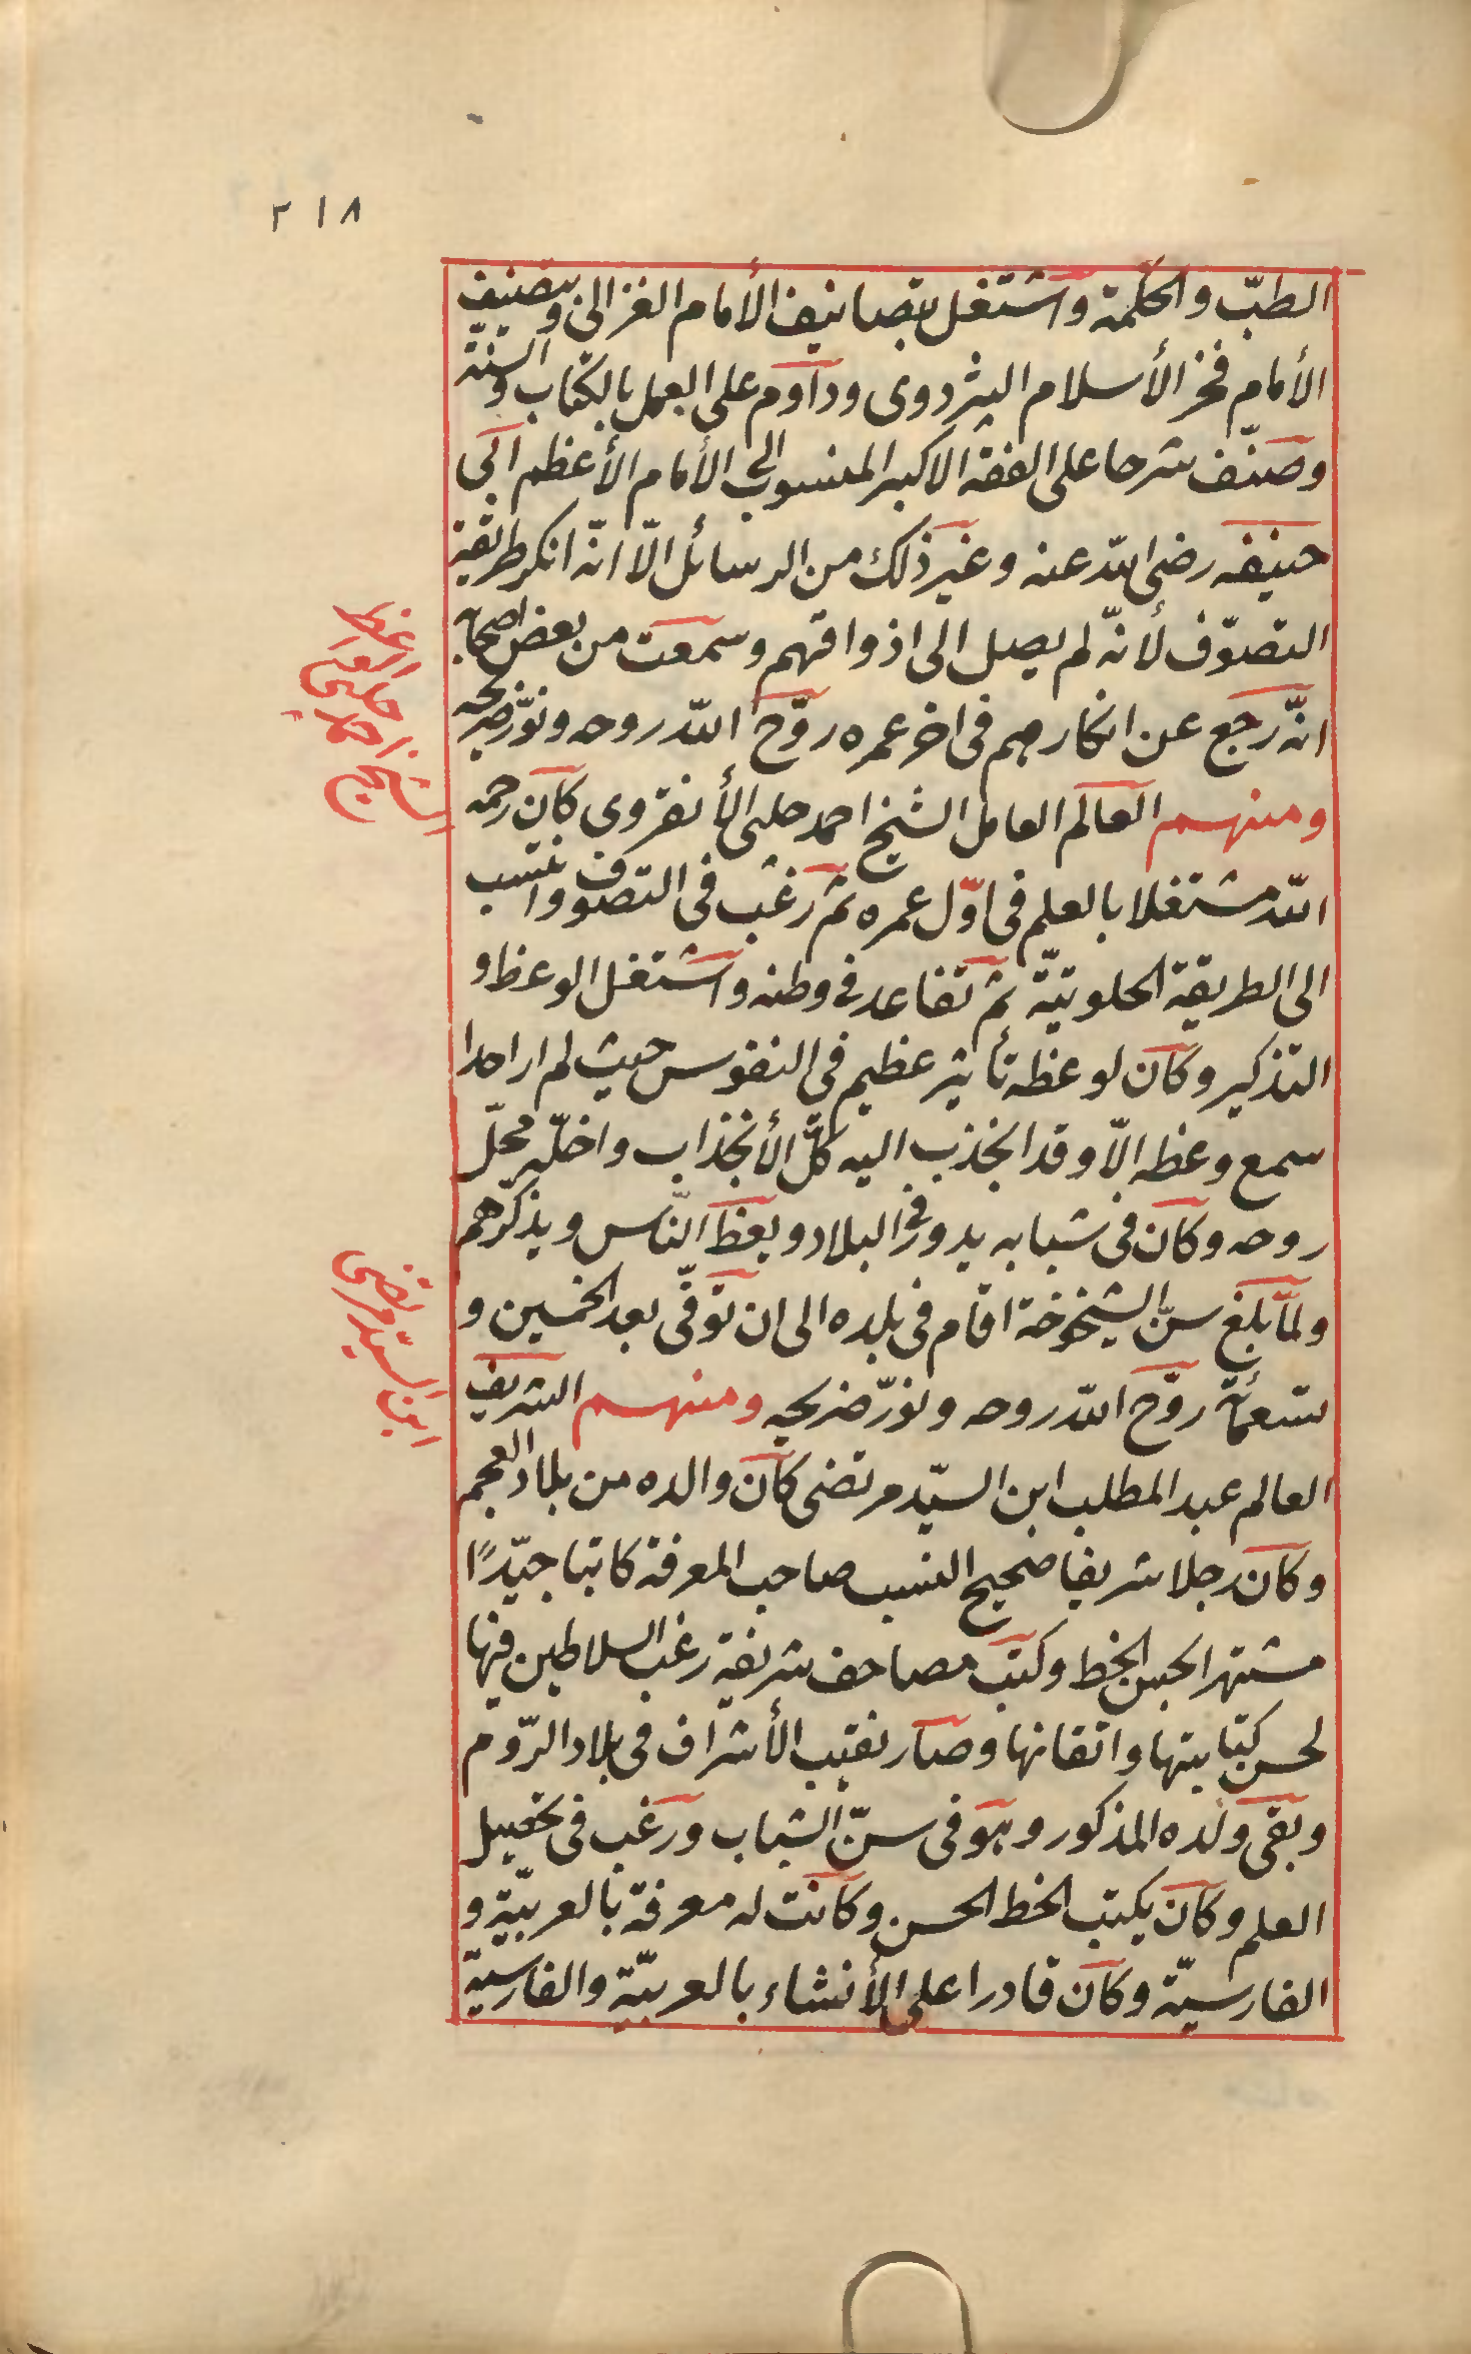 ٢١٨
الطبّ والحكمة واشتغل بتصانيف الأمام الغزالى وبتصنيف
الأمام فخر الأسلام البزدوى وداوم على العمل بالكتاب والسنة
وصنّف شرحا على الفقه الاكبر المنسوب الى الأمام الأعظم ابى
حنيفه رضى الله عنه وغير ذلك من الرسائل الّا انّه انكر طريقة
التصوّف لأنّه لم يصل الى اذواقهم وسمعت من بعض اصحابه
انّه رجع عن انكارهم فى اخر عمره روّح الله روحه ونوّر ضريحه
ومنهم العالم العامل الشيخ احمد چلبى الأنقروى كان رحمه
الله مشتغلا بالعلم فى اوّل عمره ثم رغب فى التصوف وانتسب
الى الطريقة الخلوتيّة ثم تقاعد فى وطنه واشتغل الوعظ و
التذكير وكان لوعظه تأثير عظيم فى النفوس حيث لم ار احدا
سمع وعظه الّا وقد انجذب اليه كلّ الأنجذاب واحلّه محلّ
روحه وكان فى شبابه يدور فى البلاد ويعظ النّاس ويذكّرهم
ولمّا بلغ سنّ الشيخوخة اقام فى بلده الى ان توفّى بعد الخمسين و
تسعمأئة روّح الله روحه ونوّر ضريحه ومنهم الشريف
العالم عبد المطلب ابن السيّد مرتضى كان والده من بلاد العجم
وكان رجلا شريفا صحيح النسب صاحب المعرفة كاتبا جيّدًا
مشتهرا بحسن الخط وكتب مصاحف شريفة رغب السلاطين فيها
لحسن كتابتها واتقانها وصار نقيب الأشراف فى بلاد الرّوم
وبقى ولده المذكور وهو فى سنّ الشباب ورغب فى تحصيل
العلم وكان يكتب الخط الحسن وكانت له معرفة بالعربيّة و
الفارسيّة وكان قادرا على الأنشاء بالعربيّة والفارسية
الشيخ احمد چلبى الواعظ
ابن السيد مرتضى